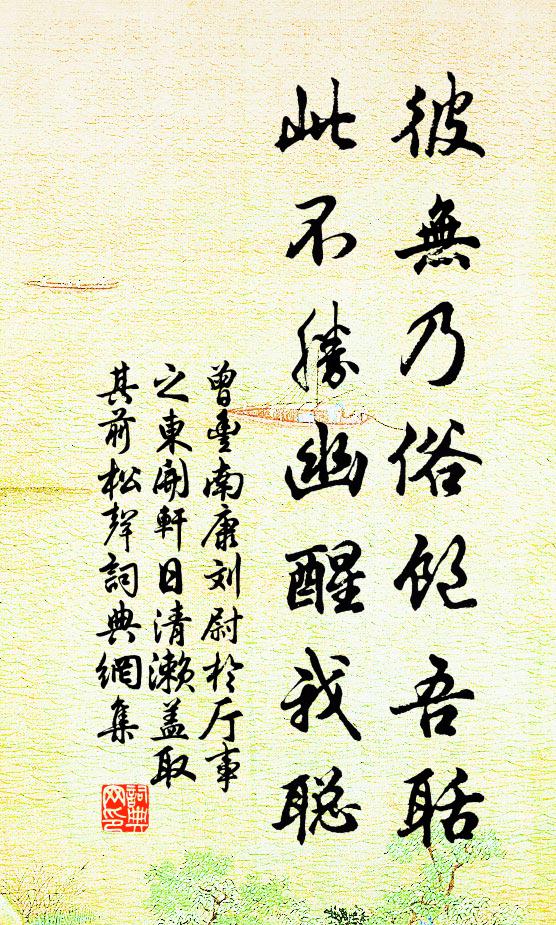 彼無乃俗飽吾聒
此不勝幽醒我聪
曾豐南康刘尉於厅事
之東開軒日清濑盖取
其前松聲詞典網集
詞典
网印